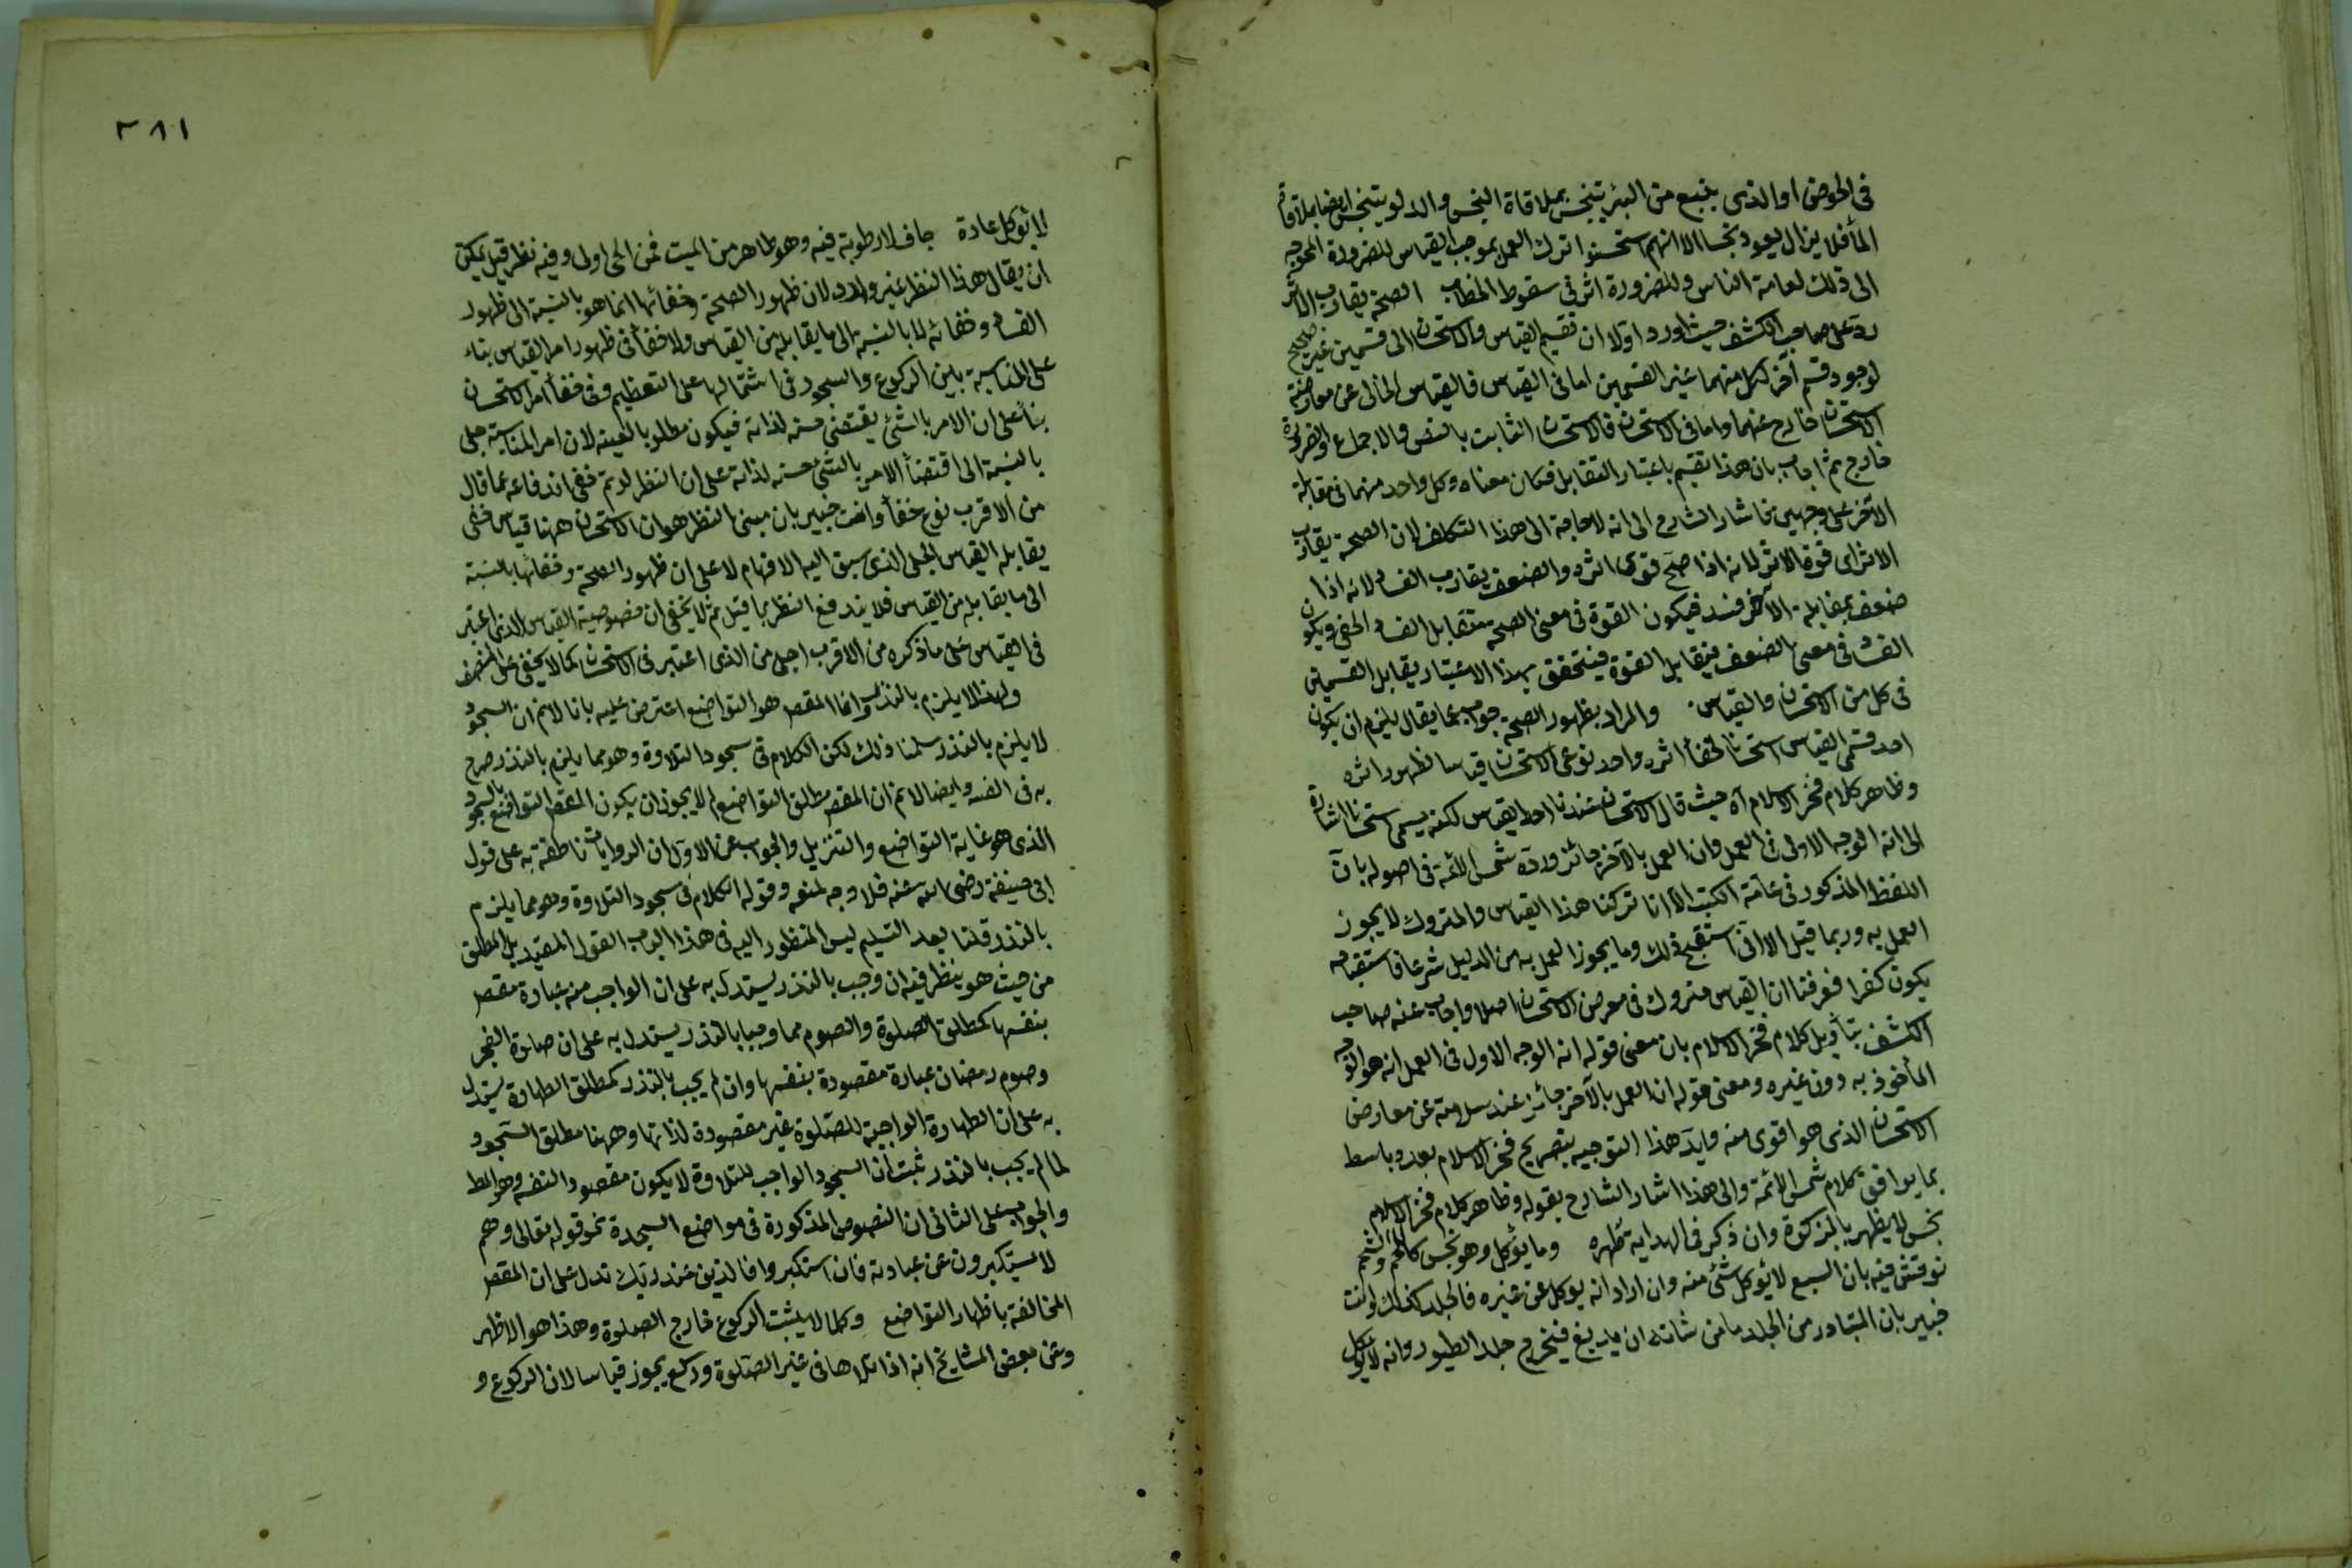 في الحوض او الذي ينبع من البئر يتنجس بملاقاة النجس والدلو يتنجس ايضا بملاقاة
الماء فلا يزال يعود نجسا الا انهم استحسنوا ترك العمل بموجب القياس للضرورة المحوجة
الى ذلك لعامة الناس وللضرورة اثر في سقوط الخطاب الصحة يقارب الاثر
رد على صاحب الكشف حيث اورد اولا ان تقسيم القياس والاستحسان الى قسمين غير صحيح
لوجود قسم آخر لكل منهما غير القسمين اما في القياس فالقياس الخالي عن معارضة
الاستحسان خارج عنهما واما في الاستحسان فالاستحسان الثابت بالنص والاجماع والضرورة
خارج ثم اجاب بان هذا تقسيم باعتبار التقابل فكان معناه وكل واحد منهما في مقابلة
الآخر على وجهين فاشار الشارح الى انه لا حاجة الى هذا التكلف لان الصحة يقارب
الاثر اي قوة الاثر لانه اذا صح قوي اثره والضعف يقارب الفساد لانه اذا
ضعف بمقابلة الآخر فسد فيكون القوة في معنى الصحة تتقابل الفساد الخفي ويكون
الفساد في معنى الضعف فيتقابل القوة فيتحقق بهذا الاعتبار يقابل القسمين
في كل من الاستحسان والقياس. والمراد بظهور الصحة جواب عما يقال يلزم ان يكون
احد قسمي القياس استحسانا لخفأ اثره واحد نوعي الاستحسان قياسا لظهور اثره
وظاهر كلام فخر الاسلام آه حيث قال الاستحسان عندنا احد القياس لكنه يسمى استحسانا اشارة
الى انه الوجه الاولى في العمل وان العمل بالآخر جائز ورده شمس الائمة في اصوله بان
اللفظ المذكور في عامة الكتب الا انا تركنا هذا القياس والمتروك لا يجوز
العمل به وربما قيل الا اني استقبح ذلك وما يجوز العمل به من الدليل شرعا فاستقباحه
يكون كفرا فعرفنا ان القياس متروك في معرض الاستحسان اصلا واجاب عنه صاحب
الكشف بتأويل كلام فخر الاسلام بان معنى قوله انه الوجه الاول في العمل انه هو الوجه
المأخوذ به دون غيره ومعنى قوله ان العمل بالآخر جائز عند سلامته عن معارض
الاستحسان الذي هو اقوى منه وايد هذا التوجيه بتصريح فخر الاسلام بعده باسط
بما يوافق كلام شمس الائمة والى هذا اشار الشارح بقوله وظاهر كلام فخر الاسلام
نجس لا يظهر بالذكوة وان ذكر في الهداية تطهره وما يؤكل وهو نجس كاللحم والشحم
نوقش فيه بان السبع لا يؤكل شئ منه وان اراد انه يوكل عن غيره فالجلد كذلك وانت
خبير بان المتبادر من الجلد ما من شانه ان يدبغ فيخرج جلد الطيور وانه لا يؤكل
٣٨١
لا يؤكل عادة جاف لا رطوبة فيه وهو طاهر من الميت فمن الحي اولى وفيه نظر قيل يمكن
ان يقال هذا النظر غير وارد لان ظهور الصحة وخفائها انما هو بالنسبة الى ظهور
الفساد وخفائه لا بالنسبة الى ما يقابله من القياس ولا خفأ في ظهور امر القياس بناء
على المناسبة بين الركوع والسجود في اشتمالها على التعظيم وفي خفأ امر الاستحسان
بنأ على ان الامر بالشئ يقتضي حسنه لذاته فيكون مطلوبا لعينه لان امر المناسبة جلي
بالنسبة الى اقتضأ الامر بالشئ حسنه لذاته على ان النظر لو تم ففي اندفاعه بما قال
من الاقرب نوع خفأ وانت خبير بان مبنى النظر هو ان الاستحسان ههنا قياس خفي
يقابله القياس الجلي الذي سبق اليه الافهام لا على ان ظهور الصحة وخفائها بالنسبة
الى ما يقابله من القياس فلا يندفع النظر بما قيل ثم لا يخفى ان خصوصية القياس الذي اعتبر
في القياس على ما ذكره من الاقرب اجلى من الذي اعتبر في الاستحسان كما لا يخفى على المنصف
ولهذا لا يلزم بالنذر وانما المقصد هو التواضع اعترض عليه بانا لا نم ان السجود
لا يلزم بالنذر سلمنا ذلك لكن الكلام في سجود التلاوة وهو مما يلزم بالنذر صرح
به في الفقه وايضا لا نم ان المقصد مطلق التواضع لم لا يجوز ان يكون المقصد التواضع بالسجود
الذي هو غاية التواضع والتنزيل والجواب عن الاول ان الروايات ناطقة به على قول
ابي حنيفة رضي الله عنه فلا وجه لمنعه وقوله الكلام في سجود التلاوة وهو مما يلزم
بالنذر قلنا بعد التسليم ليس المنظور اليه في هذا الباب القول المقيد بل المطلق
من حيث هو ينظر فيه ان وجب بالنذر يستدل به على ان الواجب منه عبادة مقصودة
بنفسها كمطلق الصلوة والصوم مما وجبا بالنذر يستدل به على ان صلوة الفجر
وصوم رمضان عبادة مقصودة بنفسها وان لم يجب بالنذر كمطلق الطهارة يستدل
به على ان الطهارة الواجبة للصلوة غير مقصودة لذاتها وههنا مطلق السجود
لما لم يجب بالنذر ثبت ان السجود الواجب للتلاوة لا يكون مقصودا لنفسه وهو المط
والجواب على الثاني ان النصوص المذكورة في مواضع السجدة نحو قوله تعالى وهم
لا يستكبرون عن عبادته فان استكبروا فالذين عند ربك تدل على ان المقصد
المخالفة باظهار التواضع وكما لا يثبت الركوع خارج الصلوة وهذا هو الاظهر
وعن بعض المشايخ انه اذا تلاها في غير الصلوة وركع يجوز قياسا لان الركوع و